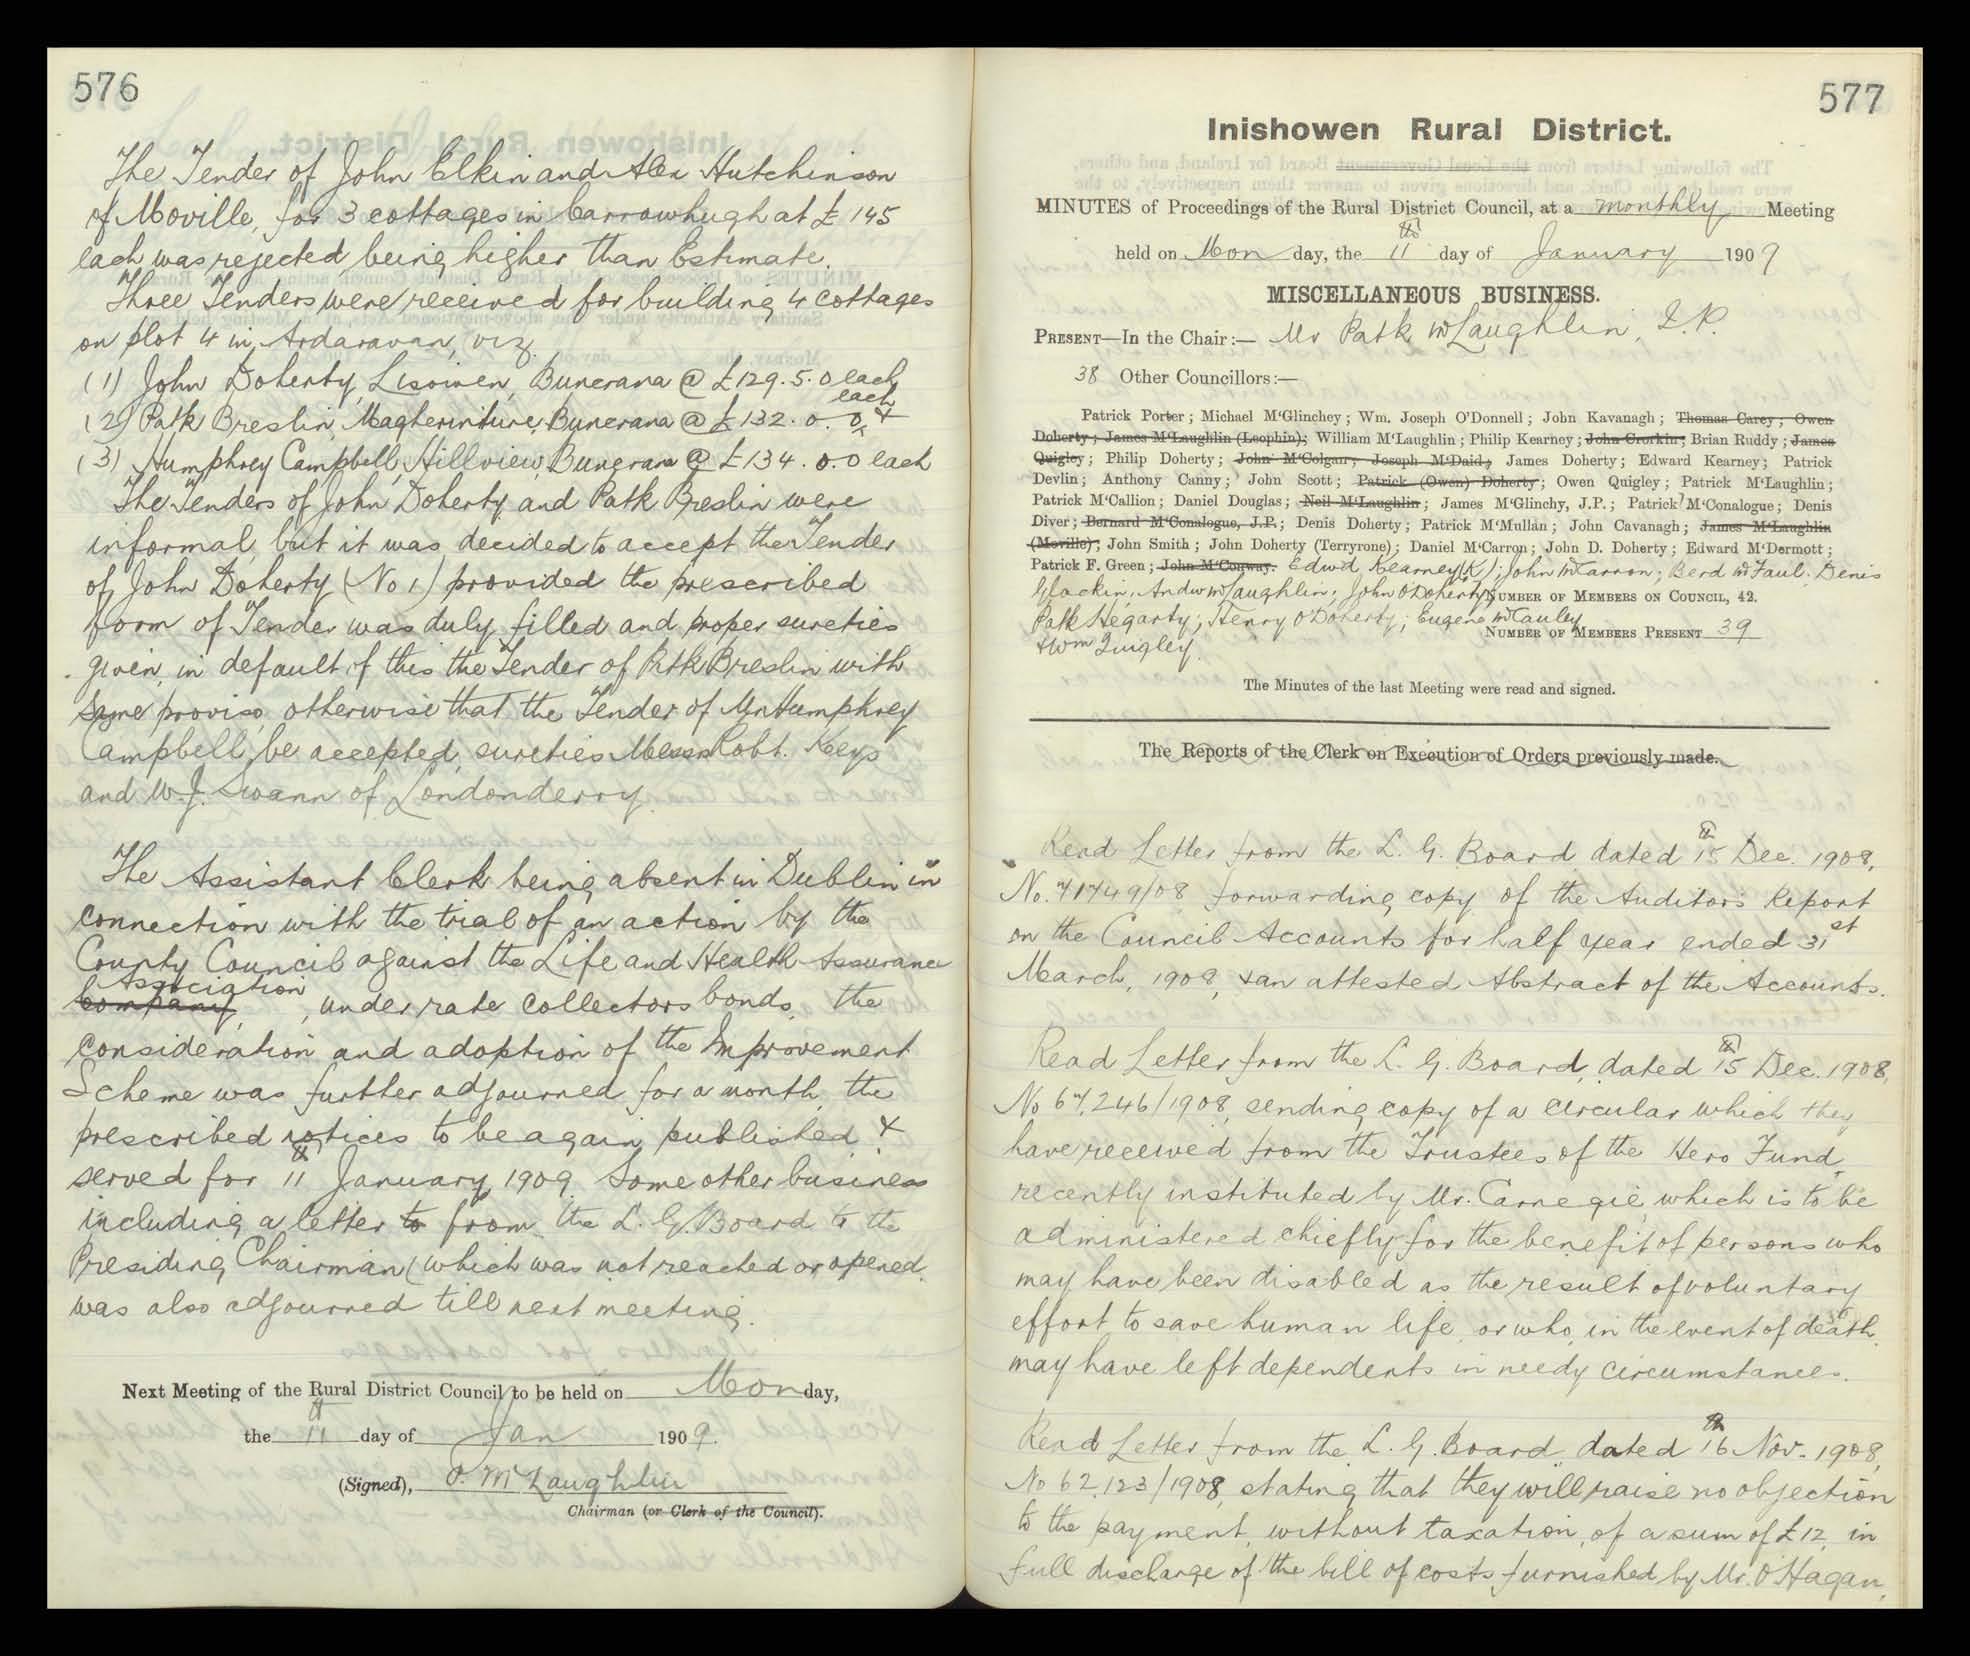 576
The Tender of John Elkin and Alex Hutchinson
of Moville, for 3 cottages in Carrowhugh at £ 145
each was rejected being higher than Estimate.
Three Tenders were received for building 4 cottages
on plot 4 in Ardaravan, viz.
(1) John Doherty, Lisowen, Buncrana @ £129.5.0 each
each
(2) Patk Breslin, Magherinture, Buncrana @ £132.0.0, &
(3) Humphrey Campbell, Hillview, Buncrana @ £134.0.0 each
The Tenders of John Doherty and Patk Breslin were
informal, but it was decided to accept the Tender
of John Doherty (No 1) provided the prescribed
form of Tender was duly filled and proper sureties
given, in default of this the Tender of Patk Breslin with
same proviso, otherwise that the Tender of Mr Humphrey
Campbell, be accepted, sureties Messrs Robt. Keys
and W.J. Swann of Londonderry.
The Assistant Clerk being absent in Dublin in
connection with the trial of an action by the
County Council against the Life and Health Assurance
Association
Company, , under rate collectors bonds, the
consideration and adoption of the Improvement
Scheme was further adjourned for a month, the
prescribed notices to be again published &
served for 11th January 1909. Some other business
including a letter to from the L. G. Board to the
Presiding Chairman (which was not reached or opened
was also adjourned till next meeting.
Next Meeting of the Rural District Council to be held on Monday,
the 11th day of Jan 1909.
(Signed), P. McLaughlin
Chairman (or Clerk of the Council).
577
Inishowen Rural District.
MINUTES of Proceedings of the Rural District Council, at a monthly Meeting
held on Monday, the 11th day of January 1909
MISCELLANEOUS BUSINESS.
PRESENT—In the Chair:— Mr Patk McLaughlin, J.P.
38 Other Councillors:—
Patrick Porter; Michael M'Glinchey; Wm. Joseph O'Donnell; John Kavanagh; Thomas Carey; Owen
Doherty; James M'Laughlin (Leophin); William M'Laughlin; Philip Kearney; John Crorkin; Brian Ruddy; James
Quigley; Philip Doherty; John M'Colgan; Joseph M'Daid; James Doherty; Edward Kearney; Patrick
Devlin; Anthony Canny; John Scott; Patrick (Owen) Doherty; Owen Quigley; Patrick M'Laughlin;
Patrick M'Callion; Daniel Douglas; Neil M'Laughlin; James M'Glinchy, J.P.; Patrick M'Conalogue; Denis
Diver; Bernard M'Conalogue, J.P.; Denis Doherty; Patrick M'Mullan; John Cavanagh; James M'Laughlin
(Moville); John Smith; John Doherty (Terryrone); Daniel M'Carron; John D. Doherty; Edward M'Dermott;
Patrick F. Green; John M'Conway. Edwd Kearney (K); John McCarron; Berd McFaul. Denis
Glackin; Andw McLaughlin; John O'Doherty;
NUMBER OF MEMBERS ON COUNCIL, 42.
Patk Hegarty; Henry O'Doherty; Eugene McCauley
NUMBER OF MEMBERS PRESENT 39
& Wm Quigley.
The Minutes of the last Meeting were read and signed.
The Reports of the Clerk on Execution of Orders previously made.
Read Letter from the L. G. Board dated 15th Dec. 1908,
No. 71749/08 forwarding copy of the Auditor's Report
on the Council Accounts for half year ended 31st
March, 1908, & an attested Abstract of the Accounts.
Read Letter from the L. G. Board, dated 15th Dec. 1908,
No 67,246/1908, sending copy of a circular which they
have received from the Trustees of the Hero Fund,
recently instituted by Mr. Carnegie, which is to be
administered chiefly for the benefit of persons who
may have been disabled as the result of voluntary
effort to save human life, or who, in the event of death,
may have left dependents in needy circumstances.
Read Letter from the L. G. Board dated 16th Nov. 1908,
No 62,123/1908, stating that they will raise no objection
to the payment, without taxation, of a sum of £12, in
full discharge of the bill of costs furnished by Mr. O'Hagan,